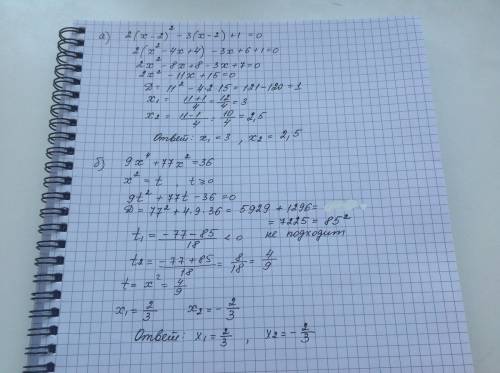 а) 2(x-2)² - 3(x-2) + 1 = 0
2(x² - 4x + 4) - 3x + 6 + 1 = 0
2x² - 8x + 8 - 3x + 7 = 0
2x² - 11x + 15 = 0
D = 11² - 4·2·15 = 121 - 120 = 1
x₁ = (11+1)/4 = 12/4 = 3
x₂ = (11-1)/4 = 10/4 = 2,5
Ответ: x₁ = 3, x₂ = 2,5
б) 9x⁴ + 77x² = 36
x² = t t ≥ 0
9t² + 77t - 36 = 0
D = 77² + 4·9·36 = 5929 + 1296 =
= 7225 = 85²
t₁ = (-77-85)/18 < 0 не подходит
t₂ = (-77+85)/18 = 8/18 = 4/9
t = x² = 4/9
x₁ = 2/3 x₂ = -2/3
Ответ: x₁ = 2/3, x₂ = -2/3